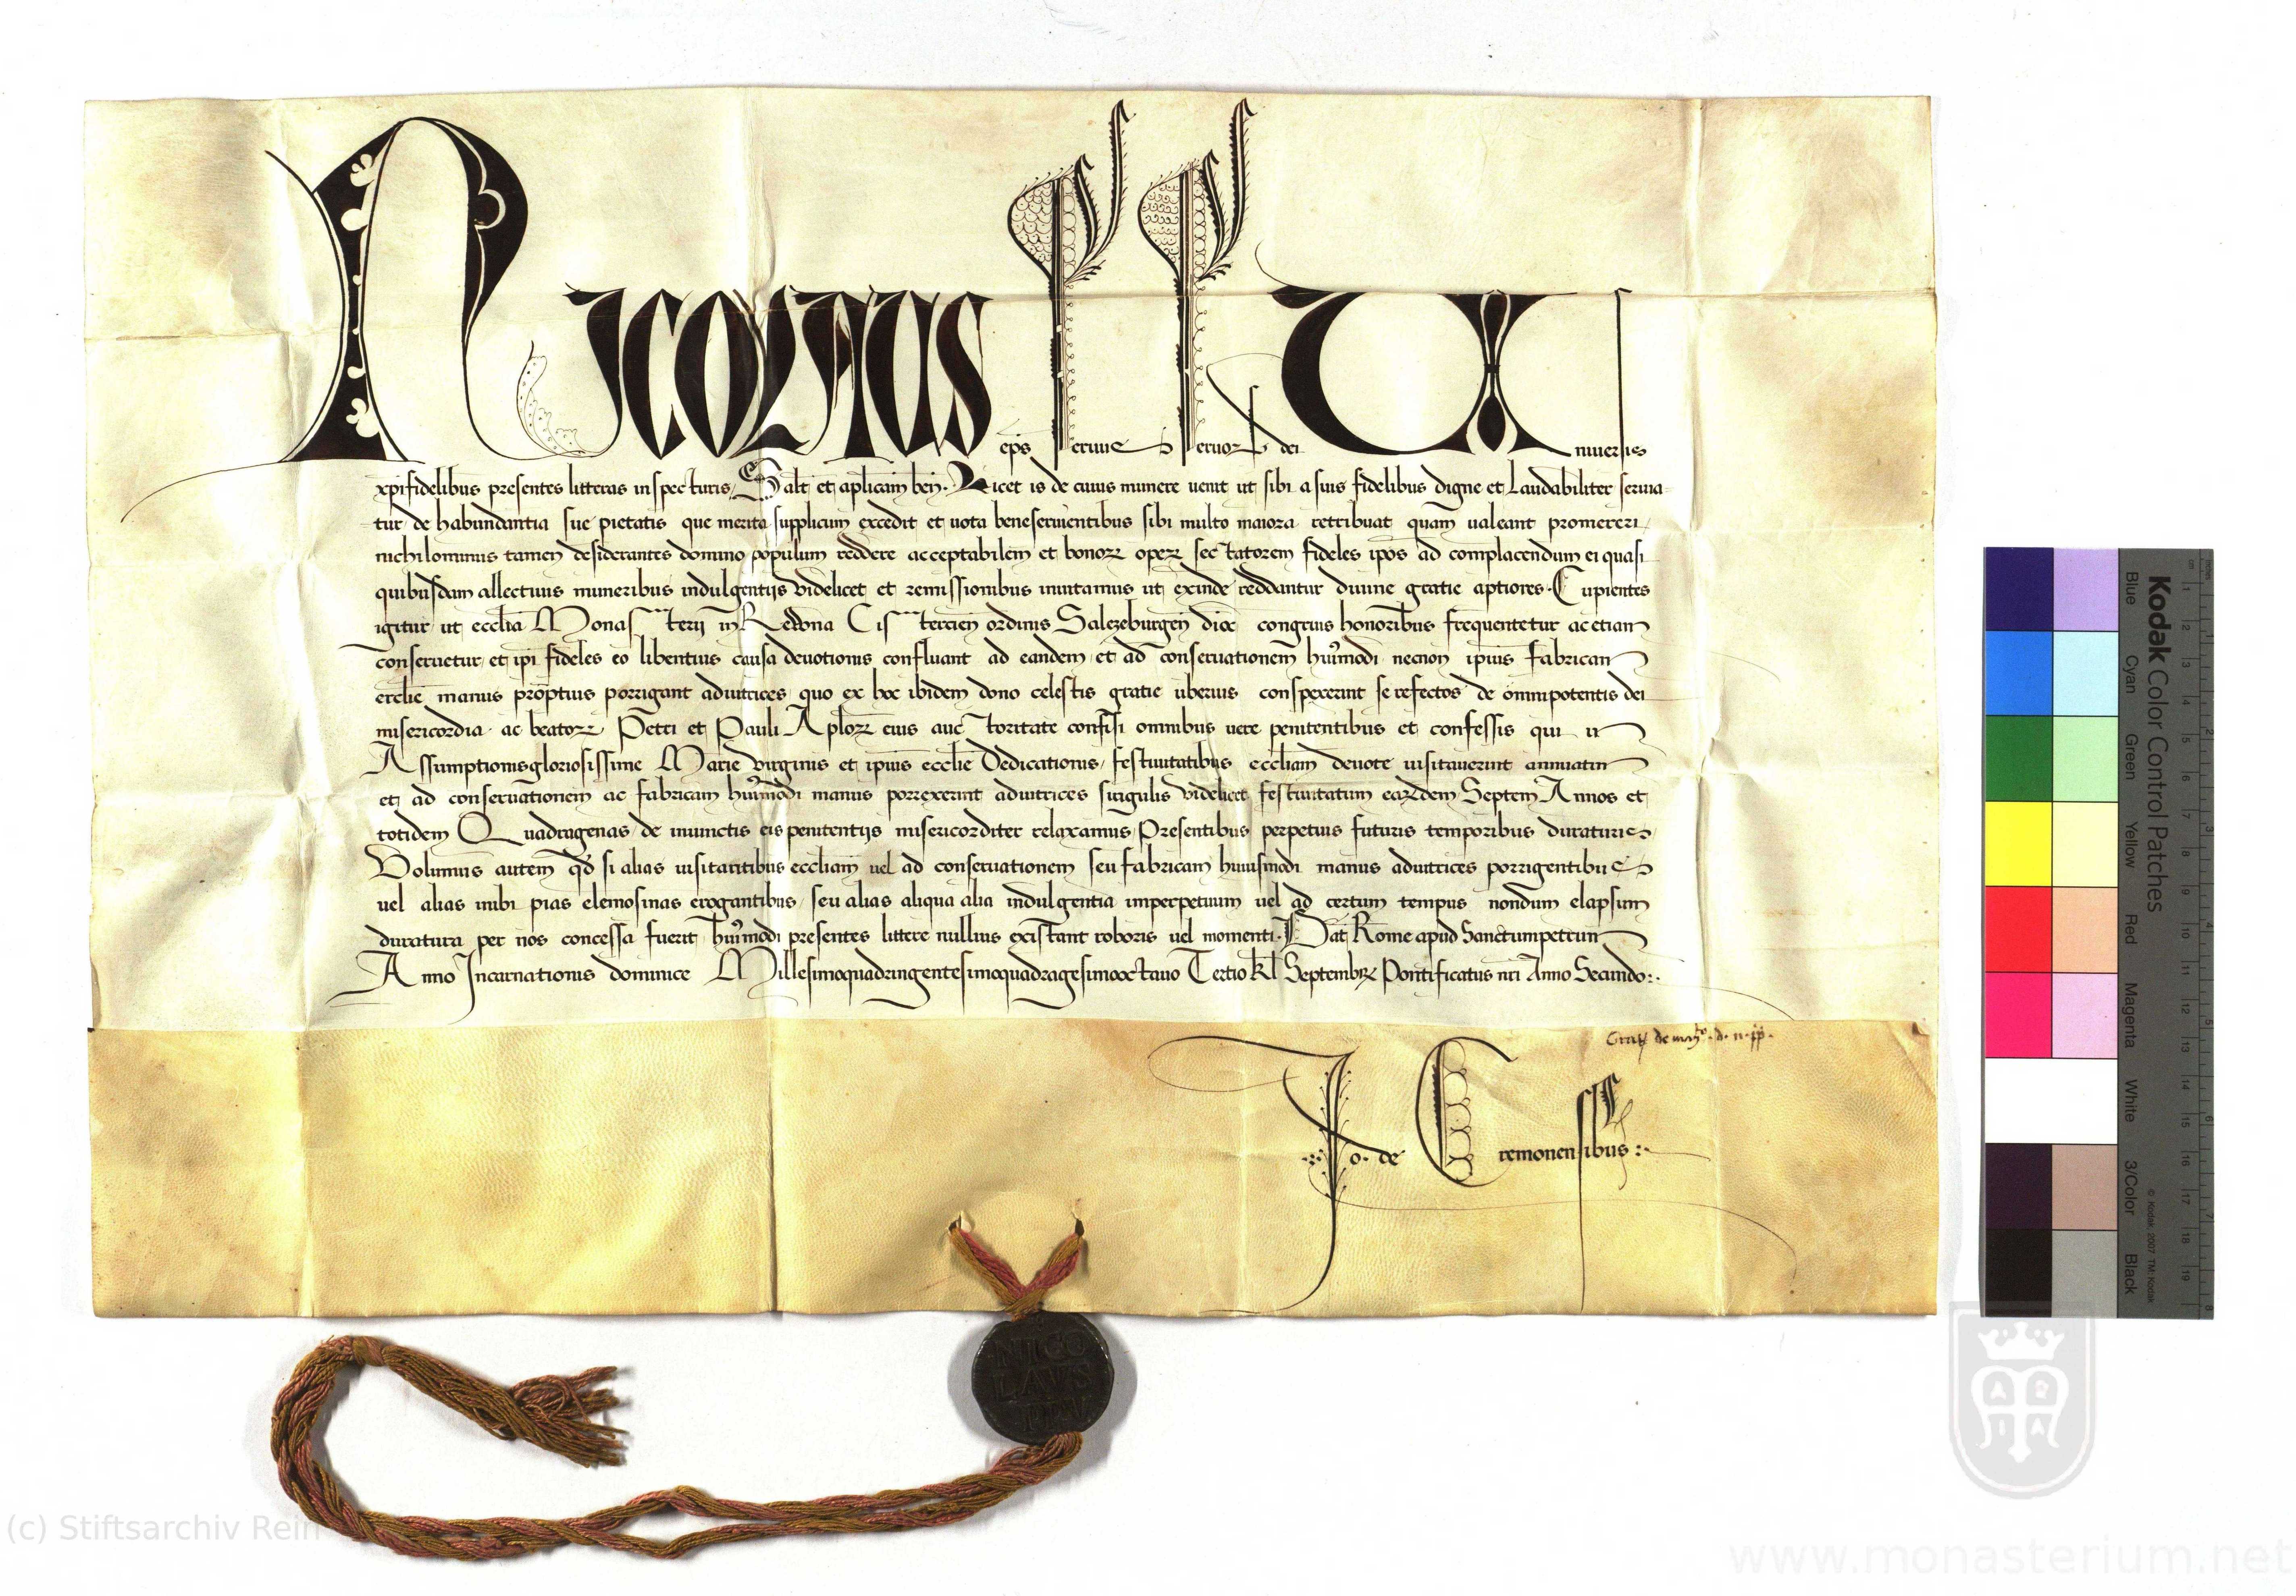 Nicolaus eps seruus seruoꝝ dei Uniuersis
xp̄ifidelibus presentes litteras inspecturis, Salt̄ et aplicam̄ ben̄. Licet is de cuius munere uenit ut sibi a suis fidelibus digne et Laudabiliter seruia-
tur, de habundantia sue pietatis que merita supplicum excedit et uota beneseruientibus sibi multo maiora retribuat quam ualeant promereri,
nichilominus tamen desiderantes domino populum reddere acceptabilem et bonoꝝ opeꝝ sectatorem fideles ipōs ad complacendum ei quasi
quibusdam allectiuis muneribus indulgentijs videlicet et remissionibus inuitamus ut exinde reddantur diuine gratie aptiores. Cupientes
igitur ut eccl̄ia Monasterij in Redona Cistercien̄ ordinis Salczeburgen̄ dioc̄ congruis honoribus frequentetur ac etiam
conseruetur et ip̄i fideles eo libentius causa deuotionis confluant ad eandem et ad conseruationem hmōi necnon ipius fabricam
eccl̄ie manus promptius porrigant adiutrices quo ex hoc ibidem dono celestis gratie uberius conspexerint se refectos de omnipotentis dei
misericordia ac beatoꝝ Petri et Pauli Aploꝝ eius auctoritate confisi omnibus uere penitentibus et confessis qui in
Assumptionis gloriosissime Marie virginis et ipius eccl̄ie Dedicationis festiuitatibus eccl̄iam deuote uisitauerint annuatim
et ad conseruationem ac fabricam hmōi manus porrexerint adiutrices singulis videlicet festiuitatum earūdem Septem Annos et
totidem Quadragenas de iniunctis eis penitentijs misericorditer relaxamus, Presentibus perpetuis futuris temporibus duraturis,
Volumus autem qd̄ si alias uisitantibus eccl̄iam uel ad conseruationem seu fabricam huiusmodi manus adiutrices porrigentibus
uel alias inibi pias elemosinas erogantibus, seu alias aliqua alia indulgentia imperpetuum uel ad certum tempus nondum elapsum
duratura per nos concessa fuerit, hmōi presentes littere nullius existant roboris uel momenti. Dat̄ Rome apud Sanctumpetrum
Anno Incarnationis dominice Millesimoquadringentesimoquadragesimooctauo Tertio kl̄ Septembꝝ Pontificatus nr̄i Anno Secundo:.
Grat̄ de man̄to d. n. pp̄.
Jo. de Cremonensibus:.
NICO
LAVS
PP V
Kodak Color Control Patches
Blue Cyan Green Yellow Red Magenta White 3/Color Black
© Kodak, 2007 TM: Kodak
(c) Stiftsarchiv Rein
www.monasterium.net